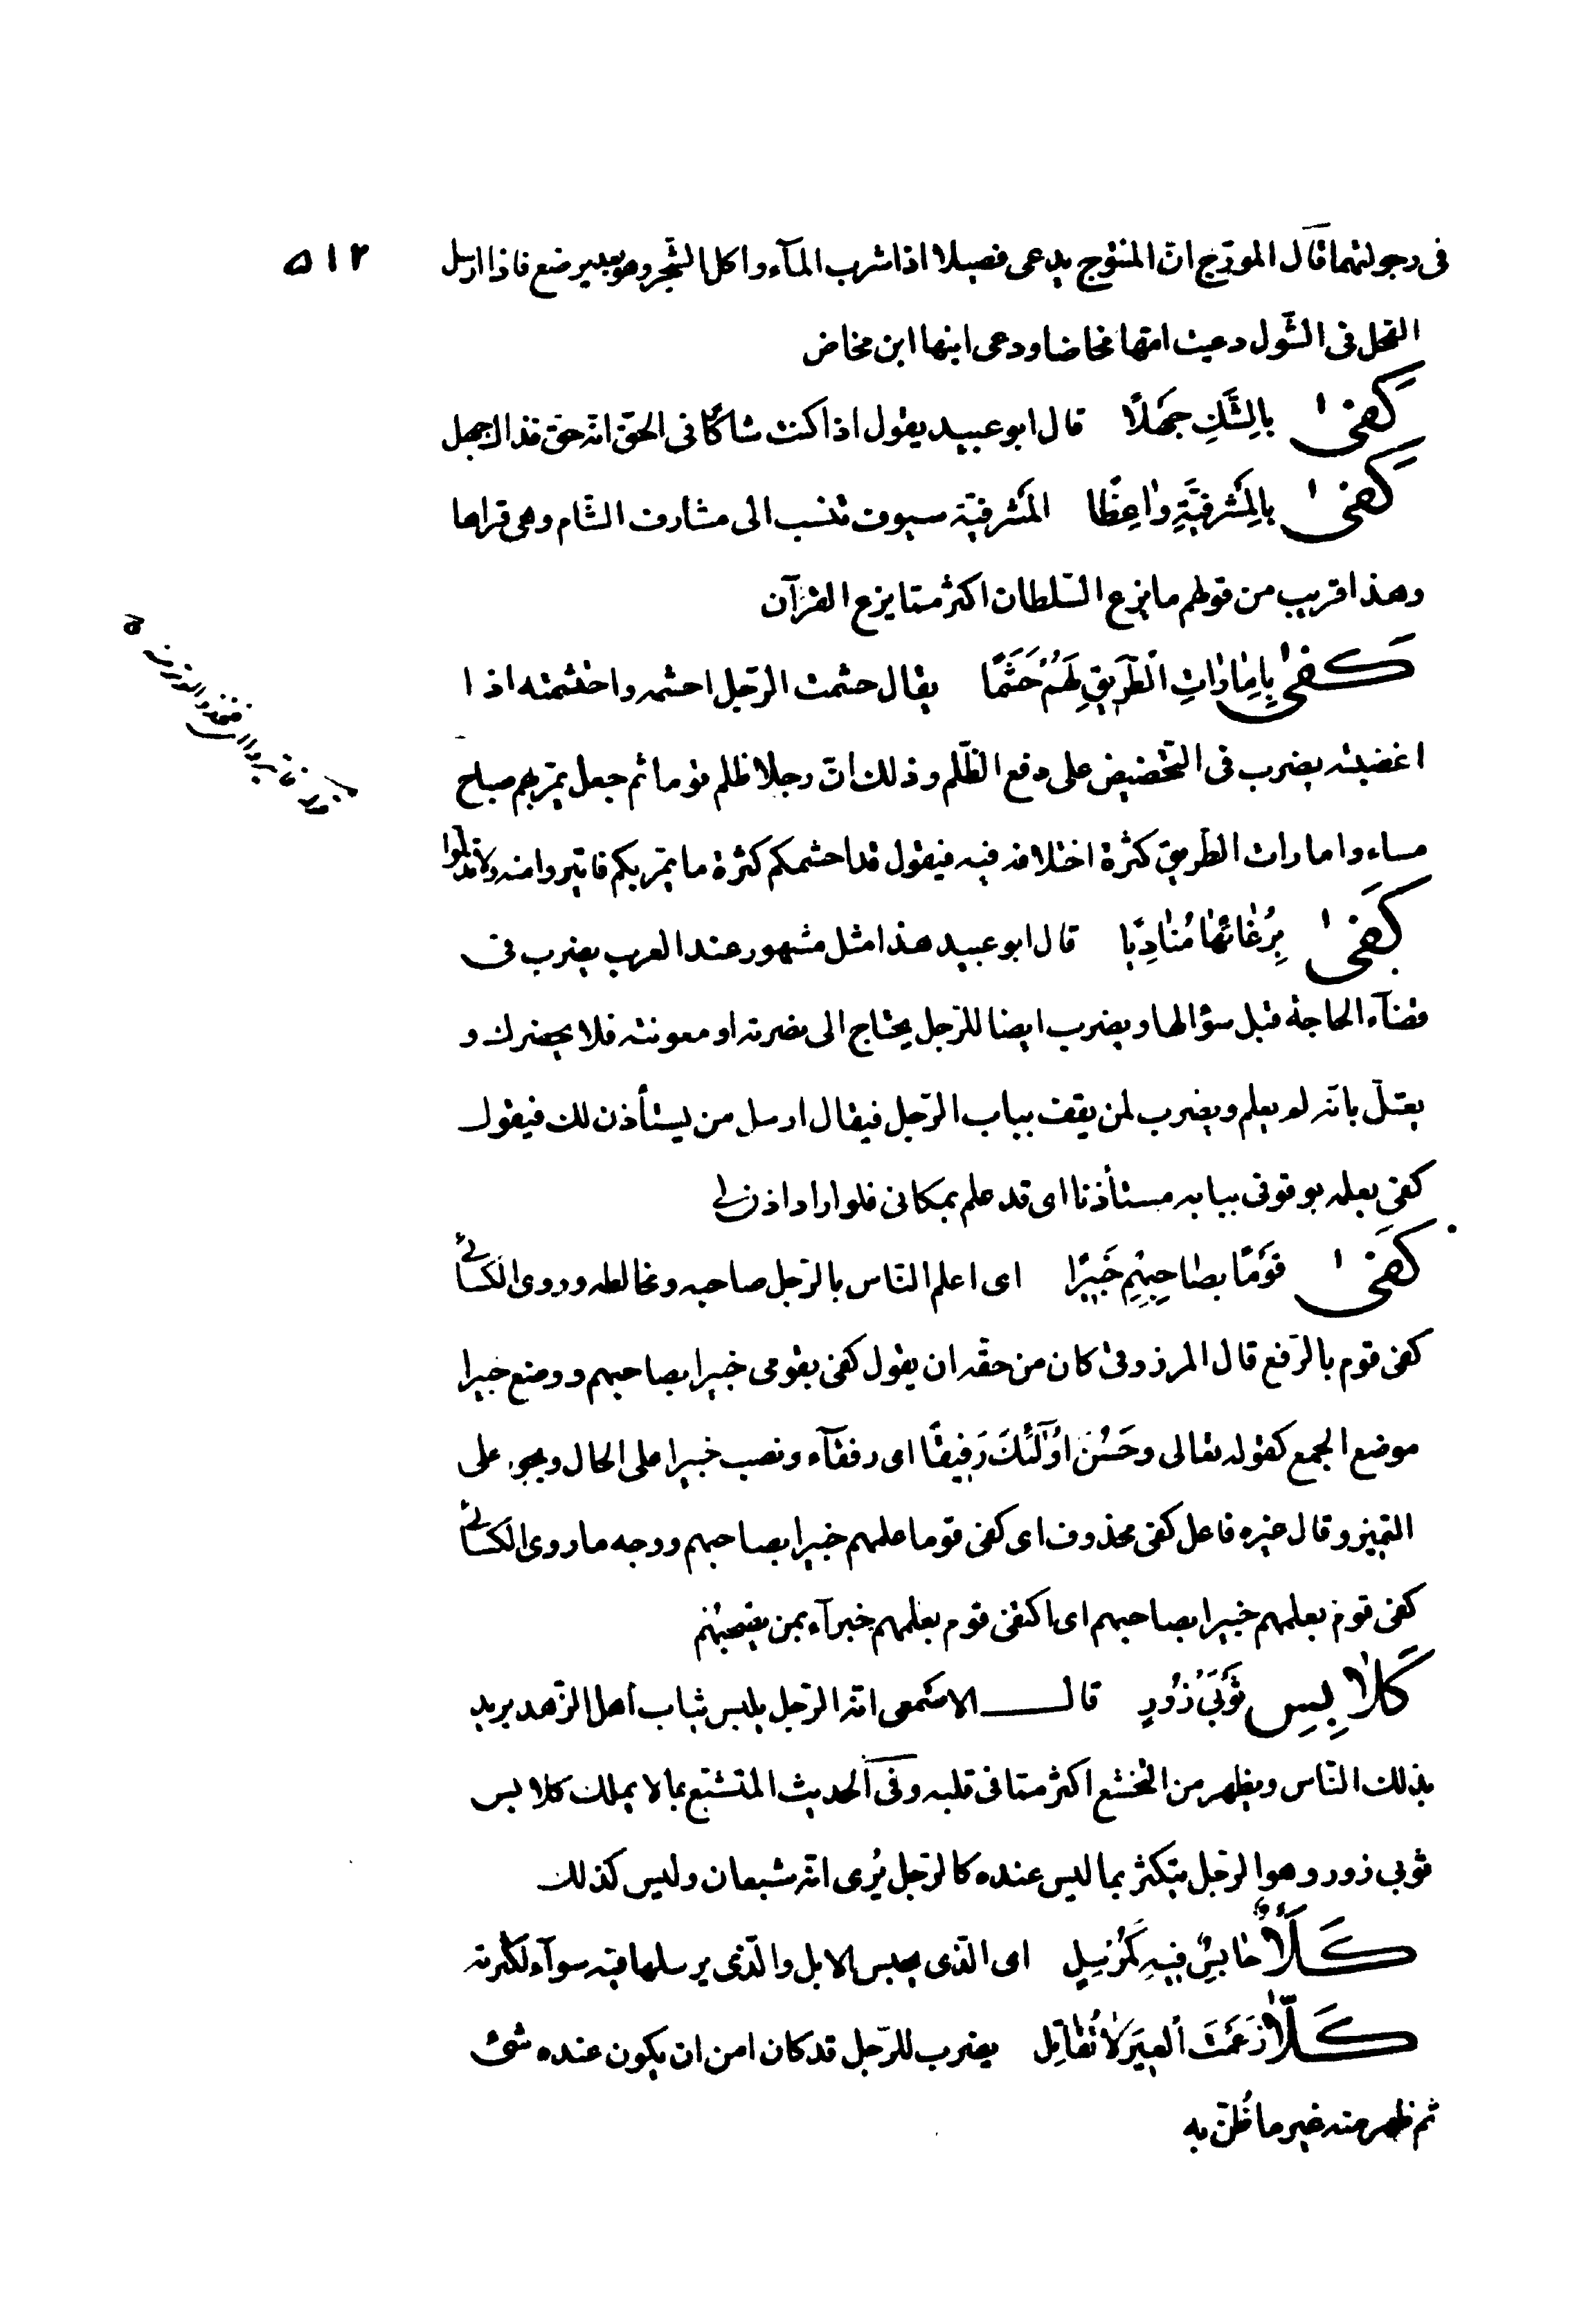 ٥١٢
فى رجولتهما قال المورّج انّ المنتوج يدعى فصيلا اذا شرب المآء واكل الشّجر وهو بعد يرضع فاذا ارسل
الفحل فى الشّول دعيت امّها مخاضا ودعى ابنها ابن مخاض
كَفىٰ بِالشَّكِ جَهْلًا قال ابو عبيد يقول اذا كنت شاكّا فى الحقّ انّه حقّ فذا الجهل
كَفىٰ بِالمَشْرَفِيَّةِ وٰاعِظًا المشرفيّة سيوف تنسب الى مشارف الشّام وهى قراها
وهذا قريب من قولهم ما يزع السّلطان اكثر ممّا يزع القرآن
كَفىٰ بِاِمٰارٰاتِ الطَّرِيقِ لَهُمْ حَشَمًا يقال حشمت الرّجل احشمه واحتشمته اذا
اغضبته يضرب فى التّحضيض على دفع الظّلم وذلك انّ رجلا ظلم قوما ثم جعل يمرّ بهم صباح
مساء وامارات الطّريق كثرة اختلافه فيه فيقول قد احشمكم كثرة ما يمرّ بكم فاتّبروا منه ولا تذلّوا
كَفىٰ بِرُغٰائهٰا مُنٰادِيًا قال ابو عبيد هذا مثل مشهور عند العرب يضرب فى
قضآء الحاجة قبل سؤالها ويضرب ايضا للرّجل يحتاج الى نصرته او معونته فلا يحضرك و
يعتلّ بانّه لم يعلم ويضرب لمن يقف بباب الرّجل فيقال ارسل من يستأذن لك فيقول
كفى بعلمه بوقوفى ببابه مستأذنا اى قد علم بمكانى فلو اراد اذن لى
كَفىٰ قَوْمًا بصٰاحِبِهِمْ خَبِيرًا اى اعلم النّاس بالرّجل صاحبه ومخالطه وروى الكسائىّ
كفى قوم بالرّفع قال المرزوقى كان من حقّه ان يقول كفى بقومى خبيرا بصاحبهم ووضع خبيرا
موضع الجمع كقوله تعالى وحَسُنَ اوُلٰٓئكَ رَفِيقًا اى رفقآء ونصب خبيرا على الحال ويجوز على
التميز وقال غيره فاعل كفى محذوف اى كفى قوما علمهم خبيرا بصاحبهم ووجه ما روى الكسائىّ
كفى قوم بعلمهم خبيرا بصاحبهم اى اكتفى قوم بعلمهم خبرآء بمن يصحبهم
كَلٰابِسِ ثَوْبَىْ زُورٍ قال الاصمعى انّه الرّجل يلبس ثياب اهل الزّهد يريد
بذلك النّاس ويظهر من التخشّع اكثر ممّا فى قلبه وفى الحديث المتشبّع بما لا يملك كلابس
ثوبى زور وهو الرّجل يتكثّر بما ليس عنده كالرّجل يُرى انّه شبعان وليس كذلك
كَلَأٌ حٰابِسٌ فِيهِ كَمُرْسِلٍ اى الذّى يحبس الابل والذّى يرسلها فيه سوآء لكثرته
كَلّٰا زَعَمْتَ العِيَر لٰا تُقٰاتِل يضرب للرّجل قد كان امن ان يكون عنده شئ
ثم ظهر منه غير ما ظُنّ به